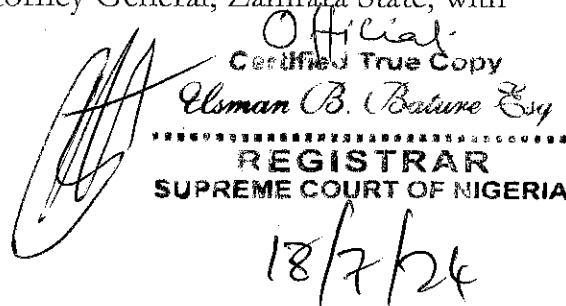 Attorney General, Zamfara State, with
Official
Certified True Copy
Usman B. Bature Esq
REGISTRAR
SUPREME COURT OF NIGERIA
18/7/24